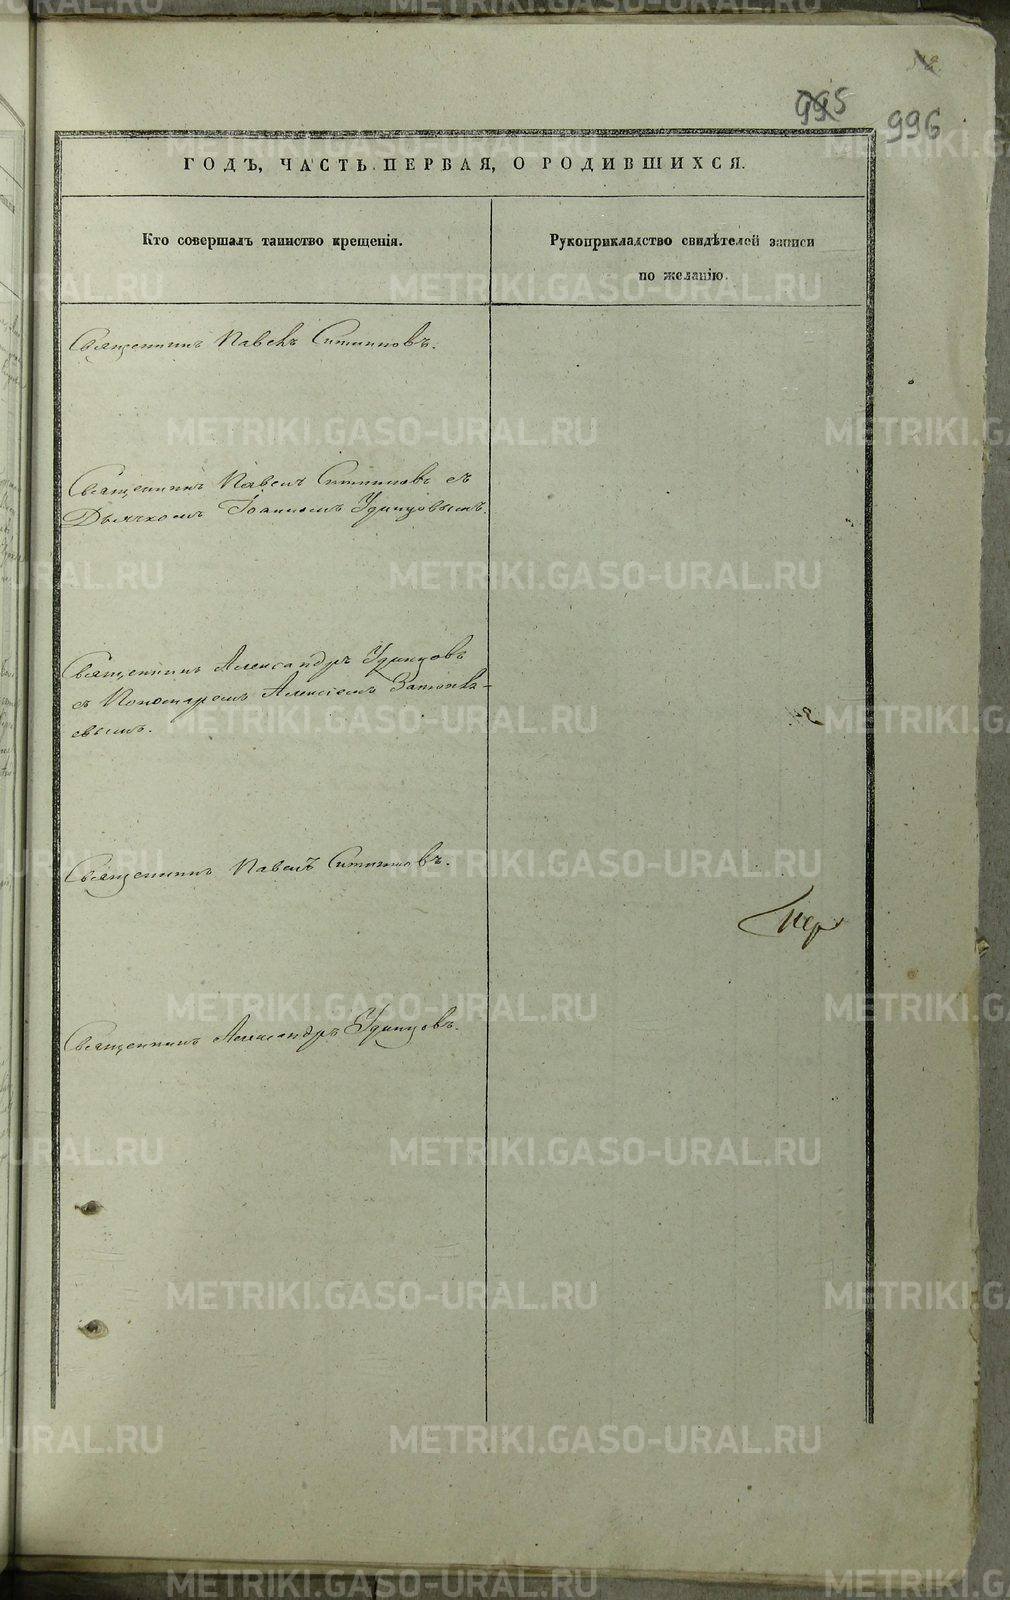 995
996
ГОДЪ, ЧАСТЬ ПЕРВАЯ, О РОДИВШИХСЯ.
Кто совершалъ таинство крещенія.
Рукоприкладство свидѣтелей записи
по желанію.
Священникъ Павелъ Ситниковъ.
Священникъ Павелъ Ситниковъ съ
Дьячкомъ Іоанномъ Удинцовымъ.
Священникъ Александръ Удинцовъ
съ Пономаремъ Алексіемъ
евымъ.
Священникъ Павелъ Ситниковъ.
Священникъ Александръ Удинцовъ.
METRIKI.GASO-URAL.RU